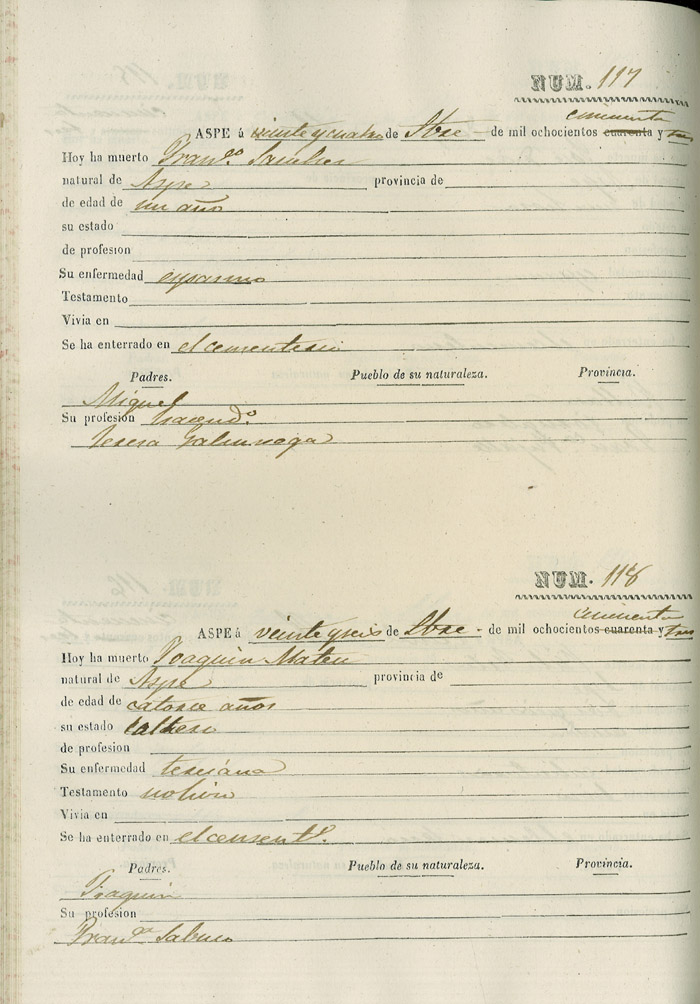 NUM. 117
cincuenta
ASPE á veinte y cuatro de 9bre de mil ochocientos cuarenta y tres
Hoy ha muerto Franco. Sanches
natural de Aspe provincia de
de edad de un año
su estado
de profesion
Su enfermedad espasmo
Testamento
Vivia en
Se ha enterrado en el cementerio
Padres. Pueblo de su naturaleza. Provincia.
Miguel
Su profesion hacendo.
Teresa
NUM. 118
cincuenta
ASPE á veinte y seis de 9bre de mil ochocientos cuarenta y tres
Hoy ha muerto Joaquin Mateu
natural de Aspe provincia de
de edad de catorse años
su estado soltero
de profesion
Su enfermedad tersiana
Testamento no hiso
Vivia en
Se ha enterrado en el cement.o
Padres. Pueblo de su naturaleza. Provincia.
Joaquin
Su profesion
Franca. Sabuco